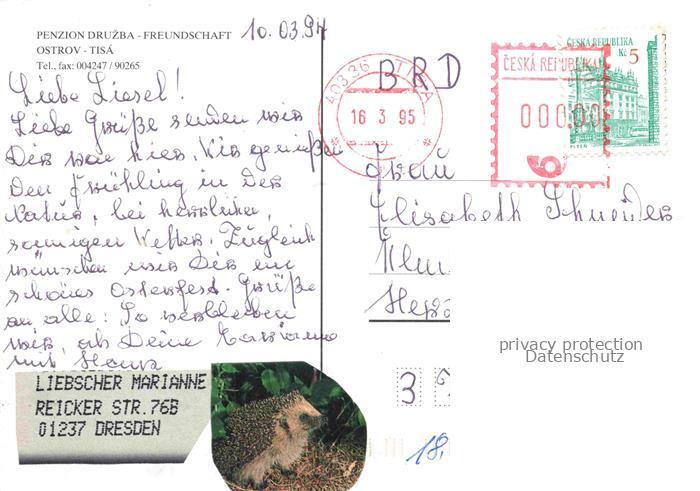 PENZION DRUŽBA - FREUNDSCHAFT
OSTROV - TISÁ
Tel., fax: 004247 / 90265
10.03.94
Liebe Liesel!
Liebe Grüße senden wir
Dir von hier. Wir genießen
Den Frühling in der
Natur, bei herrlichem,
sonnigen Wetter. Zugleich
wünschen wir Dir ein
schönes Osterfest. Grüße
an alle. So verbleiben
wir, als Deine
mit
LIEBSCHER MARIANNE
REICKER STR.76B
01237 DRESDEN
BRD
40336 TISÁ
16 3 95
ČESKÁ REPUBLIKA
000.00
ČESKÁ REPUBLIKA
Kč 5
PLZEŇ
Frau
Elisabeth Schneider
3
18.
privacy protection
Datenschutz